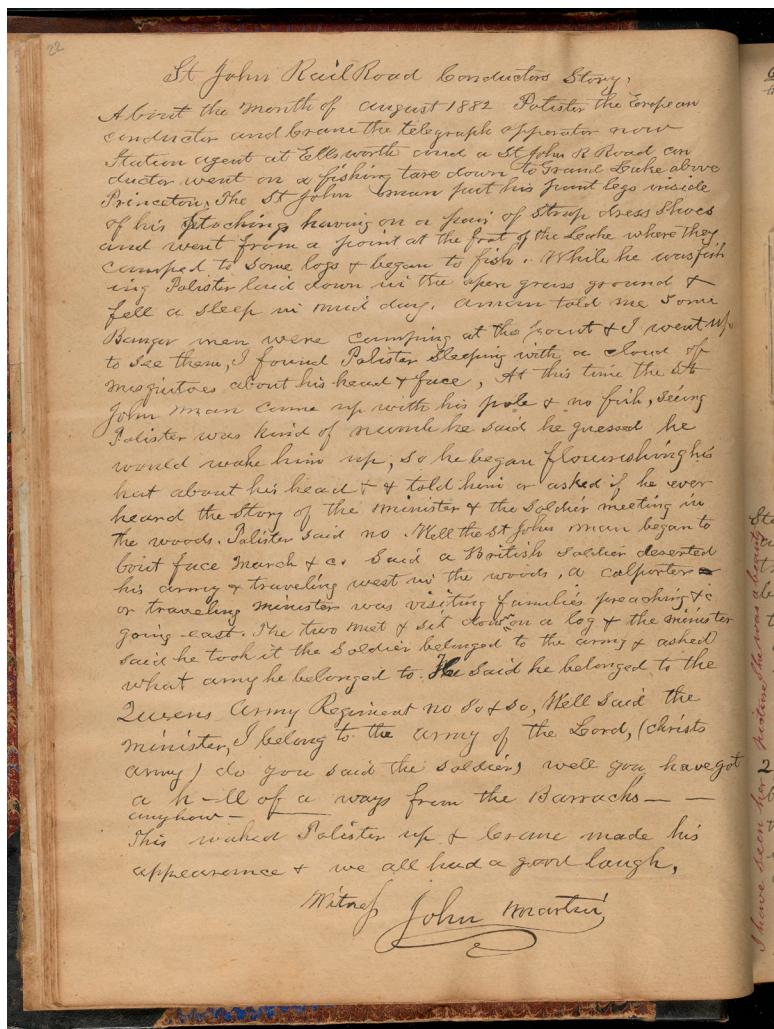 22
St John RailRoad Conductors Story.
About the Month of august 1882 Palister the European
conductor and Crane the telegraph opperator now
Station agent at Ellsworth and a St John R Road con
ductor went on a fishing tare down to Grand Lake above
Princeton. The St John man put his pant legs inside
of his stockings having on a pair of Strap dress Shoes
and went from a point at the foot of the Lake where they
camped to some logs & began to fish. While he was fish
ing Palister laid down in the open grass ground &
fell a sleep in mid day. a man told me Some
Bangor men were camping at the point & I went up
to see them, I found Palister Sleeping with a cloud of
misquitoes about his head & face, At this time the St
John man came up with his pole & no fish, seeing
Palister was kind of numb he said he guessed he
would wake him up, so he began flourishing his
hat about his head & & told him or asked if he ever
heard the Story of the minister & the Soldier meeting in
the woods. Palister said no. Well the St John man began to
bout face March & c. Said a British Soldier deserted
his army & traveling west in the woods, a colporter
or traveling minister was visiting families preaching & c
going east. The two met & set down on a log & the minister
said he took it the Soldier belonged to the army & asked
what army he belonged to. He said he belonged to the
Queens Army Regiment no so & so, Well said the
minister, I belong to the army of the Lord, (christs
army) do you said the soldier, well you have got
a h-ll of a ways from the Barracks — —
anyhow —
This waked Palister up & Crane made his
appearance & we all had a good laugh,
Witness John Martin
I have seen her picture She was a beauty
2